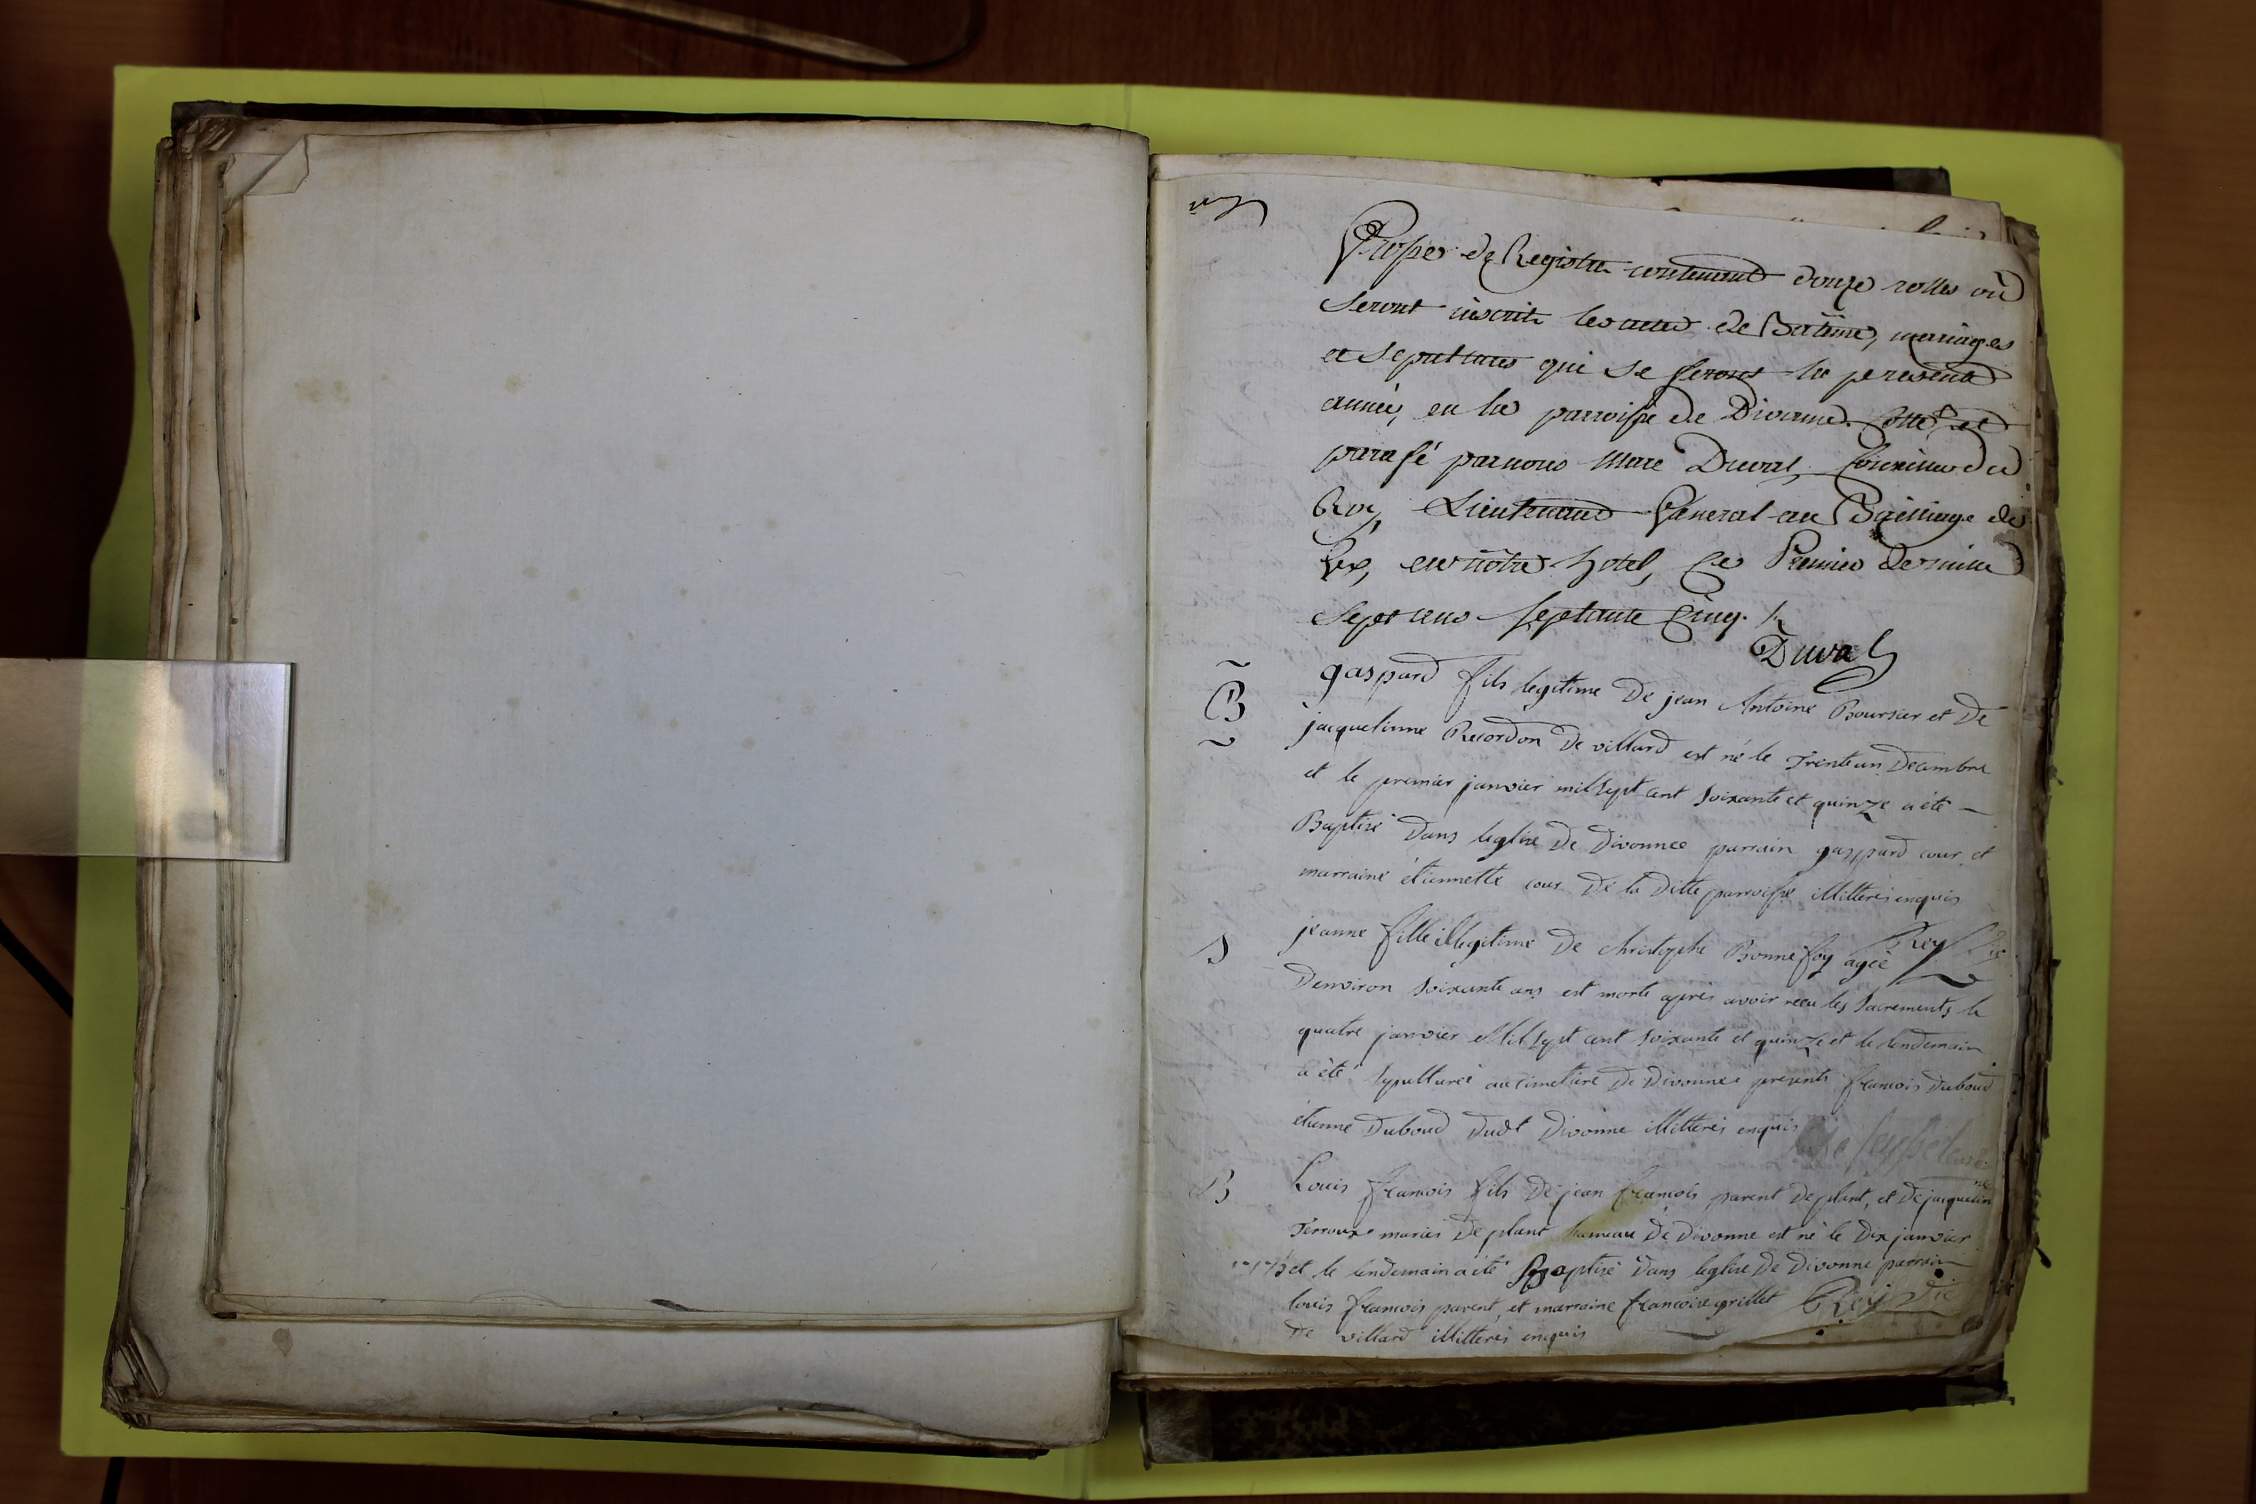 Papier de Registre contenant douze rolles où
seront inscrits les actes de Batême, mariages
et sepultures qui se feront la presente
année, en la parroisse de Divonne. Cotté et
parafé par nous Marc Duval, Conseiller du
Roy, Lieutenant General au Bailliage de
Gex, en nôtre hotel, Ce Premier Janvier mil
sept cens septante Cinq.
Duval
B
gaspard fils legitime De jean Antoine Boursier et De
jacquelinne Recordon De villard est né le Trente un Decembre
et le premier janvier mil sept cent soixante et quinze a été
Baptisé Dans leglise De Divonne parrain gaspard cour et
marraine étiennette cour De la Ditte parroisse illitterés enquis
Rey
S
jeanne fille illegitime De christophe Bonnefoy agée
Denviron soixante ans est morte après avoir recu les sacrements le
quatre janvier Mil sept cent soixante et quinze et le lendemain
a été sepulturée au cimetiere De Divonne presents francois Duboud
étienne Duboud Dudt Divonne illitterés enquis
B
Louis francois fils De jean francois parent De plant, et De jacquelinne
Terroux mariés De plant hameau De Divonne est né le Dix janvier
1775 et le lendemain a été Baptisé Dans leglise De Divonne parrain
louis francois parent, et marraine francoise grillet
Rey vic
De villard illitterés enquis